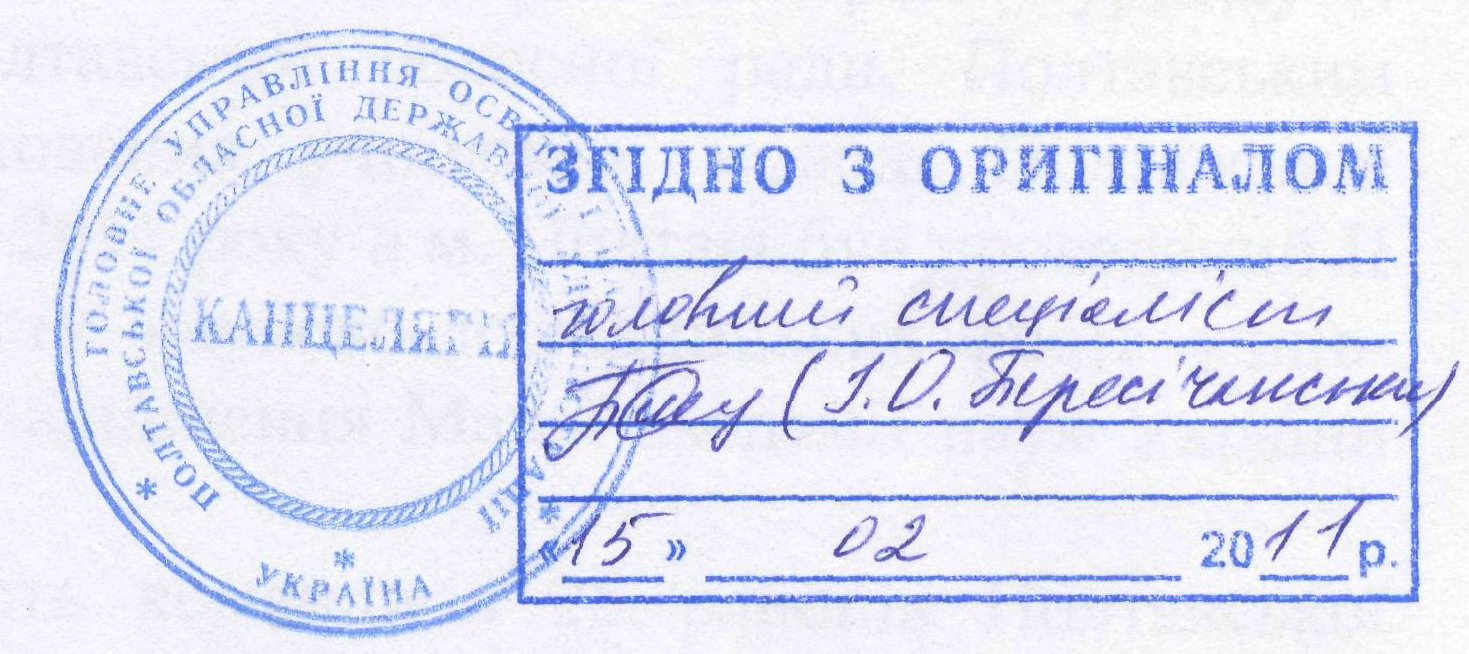 ГОЛОВНЕ УПРАВЛІННЯ ОСВІТИ І
ПОЛТАВСЬКОЇ ОБЛАСНОЇ ДЕРЖАВНОЇ
КАНЦЕЛЯРІЯ
* УКРАЇНА *
ЗГІДНО З ОРИГІНАЛОМ
головний спеціаліст
(І.О. Пересічанська)
«15» 02 2011 р.